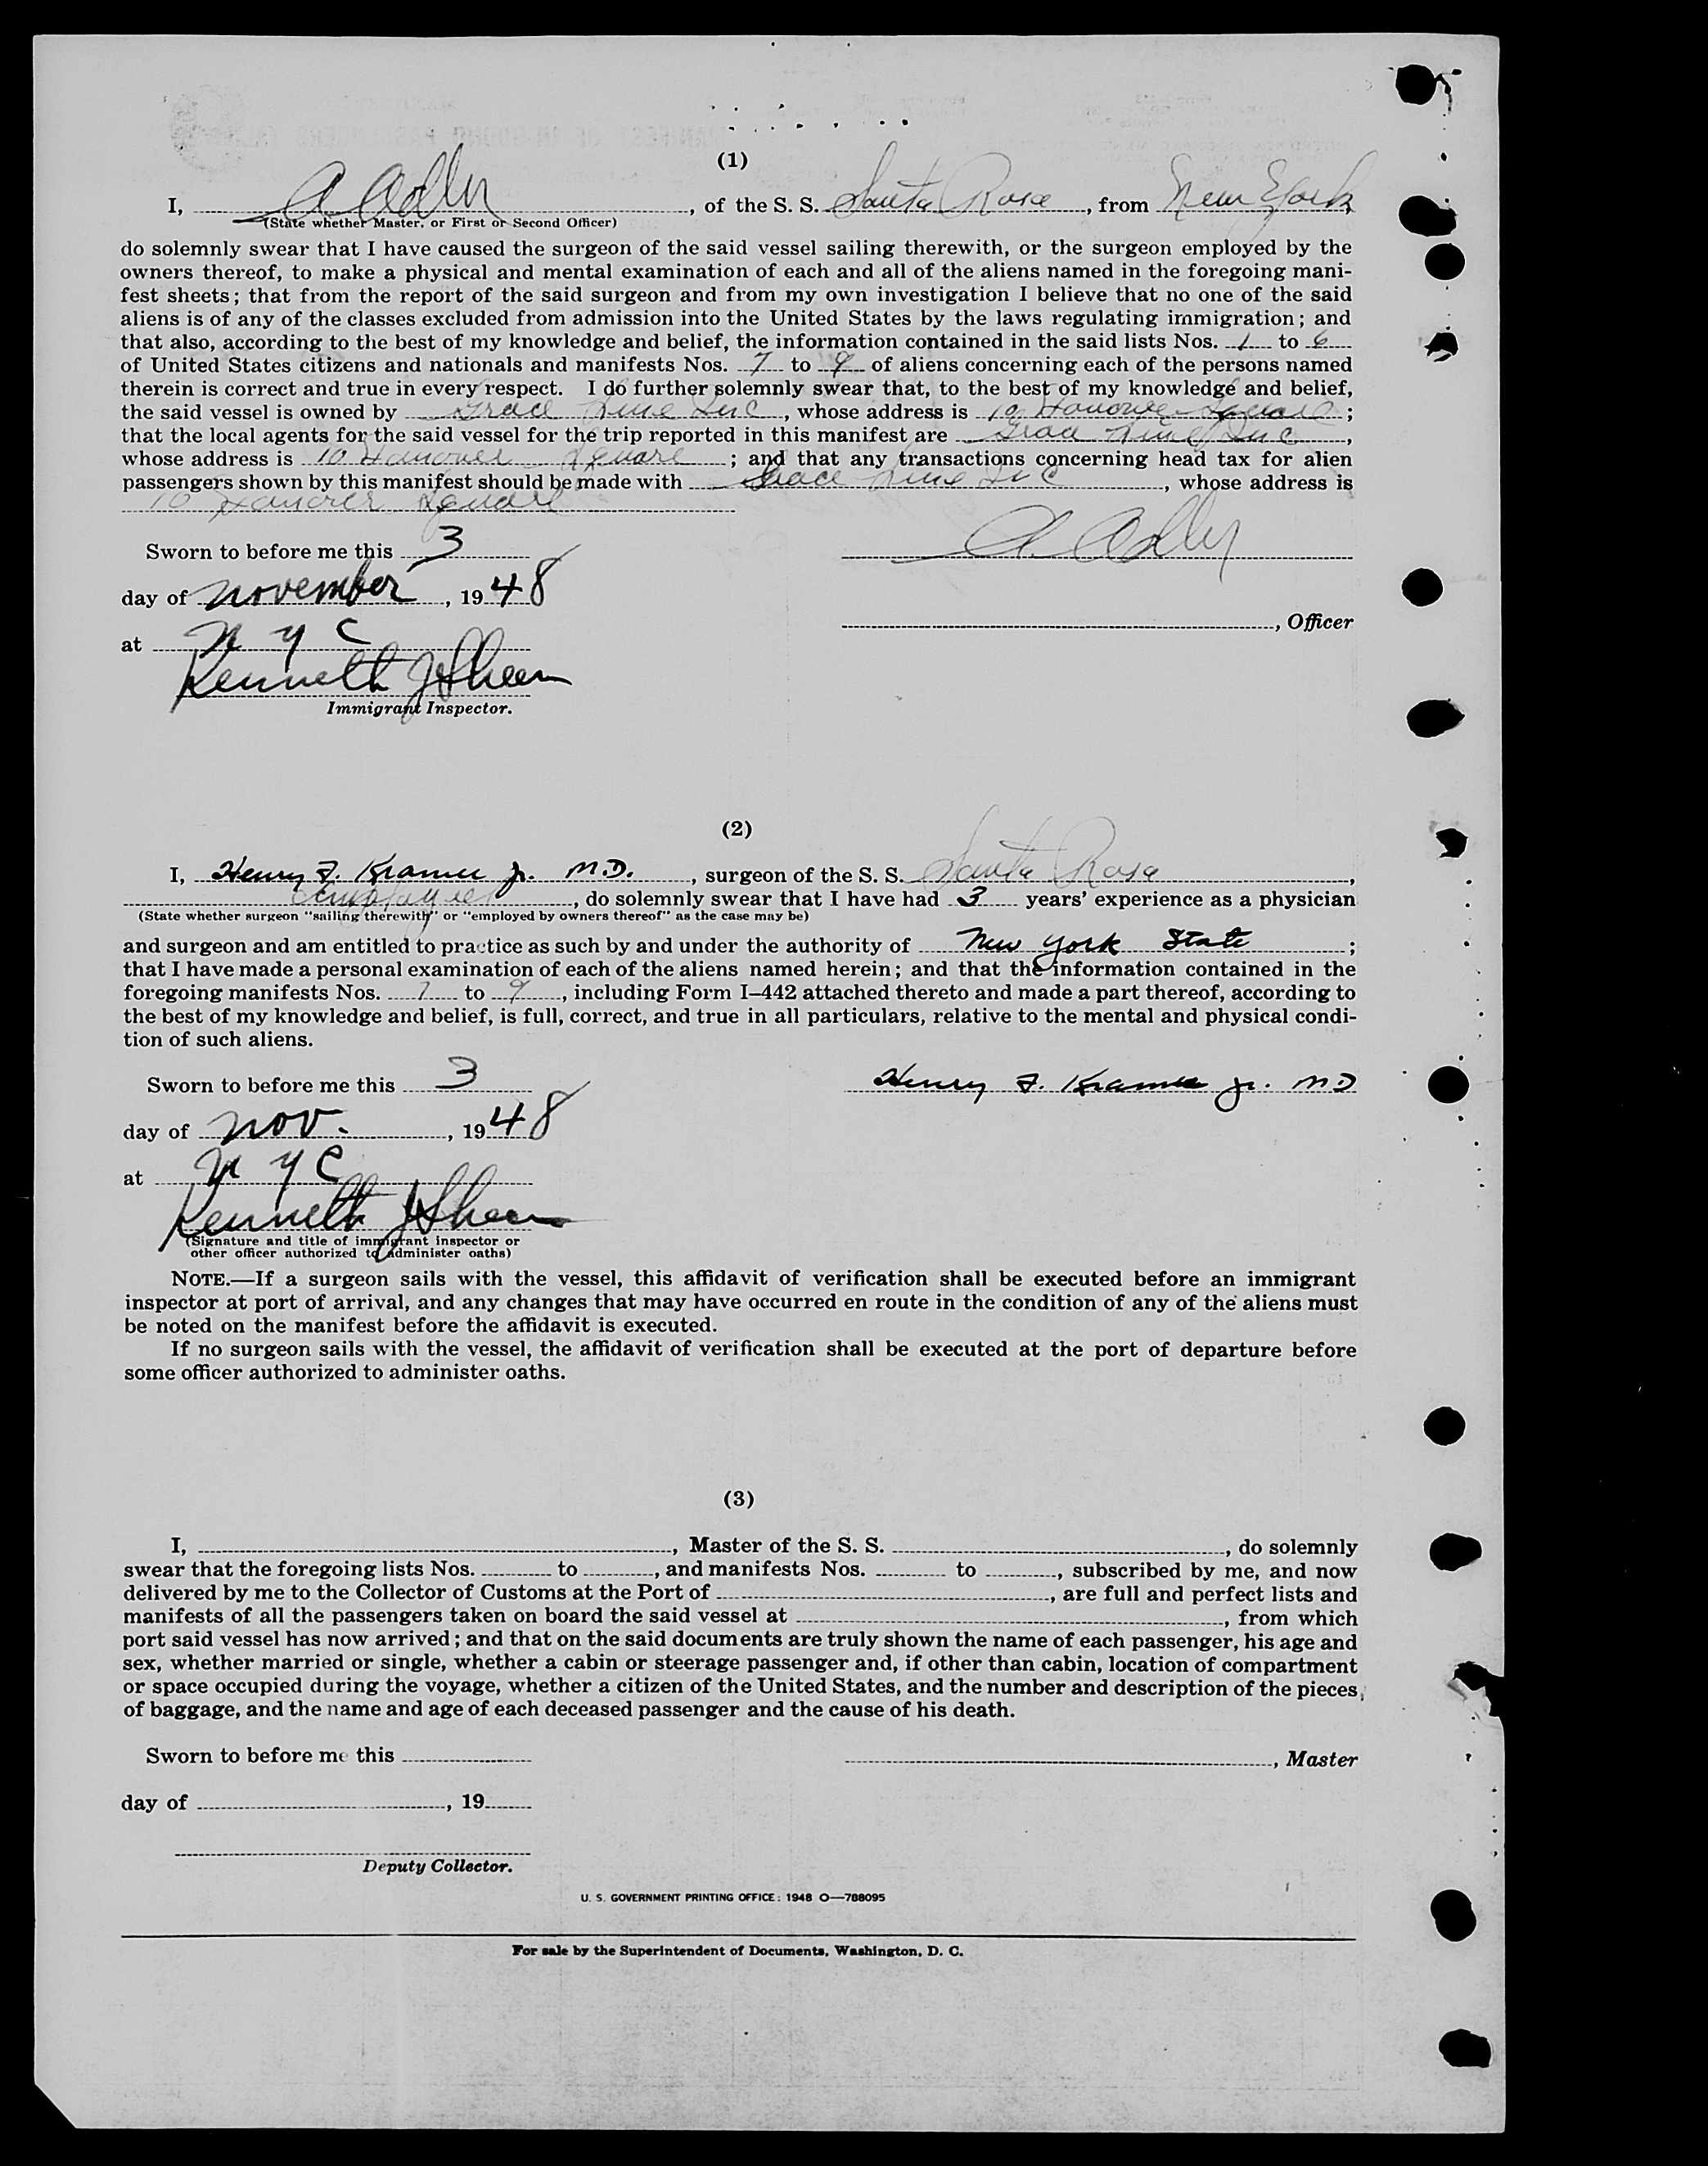 (1)
I, A Adler, of the S. S. Santa Rosa, from New York
(State whether Master, or First or Second Officer)
do solemnly swear that I have caused the surgeon of the said vessel sailing therewith, or the surgeon employed by the
owners thereof, to make a physical and mental examination of each and all of the aliens named in the foregoing mani-
fest sheets; that from the report of the said surgeon and from my own investigation I believe that no one of the said
aliens is of any of the classes excluded from admission into the United States by the laws regulating immigration; and
that also, according to the best of my knowledge and belief, the information contained in the said lists Nos. 1 to 6
of United States citizens and nationals and manifests Nos. 7 to 9 of aliens concerning each of the persons named
therein is correct and true in every respect. I do further solemnly swear that, to the best of my knowledge and belief,
the said vessel is owned by Grace Line Inc, whose address is 10 Hanover Square;
that the local agents for the said vessel for the trip reported in this manifest are Grace Line Inc,
whose address is 10 Hanover Square; and that any transactions concerning head tax for alien
passengers shown by this manifest should be made with Grace Line Inc, whose address is
10 Hanover Square
Sworn to before me this 3 A. Adler
day of November, 1948
, Officer
at N Y C
Kenneth J Sheen
Immigrant Inspector.
(2)
I, Henry F. Kramer Jr. M.D., surgeon of the S. S. Santa Rosa,
employee, do solemnly swear that I have had 3 years' experience as a physician
(State whether surgeon "sailing therewith" or "employed by owners thereof" as the case may be)
and surgeon and am entitled to practice as such by and under the authority of New York State;
that I have made a personal examination of each of the aliens named herein; and that the information contained in the
foregoing manifests Nos. 7 to 9, including Form I–442 attached thereto and made a part thereof, according to
the best of my knowledge and belief, is full, correct, and true in all particulars, relative to the mental and physical condi-
tion of such aliens.
Sworn to before me this 3 Henry F. Kramer Jr. MD
day of Nov., 1948
at N Y C
Kenneth J Sheen
(Signature and title of immigrant inspector or
other officer authorized to administer oaths)
NOTE.—If a surgeon sails with the vessel, this affidavit of verification shall be executed before an immigrant
inspector at port of arrival, and any changes that may have occurred en route in the condition of any of the aliens must
be noted on the manifest before the affidavit is executed.
If no surgeon sails with the vessel, the affidavit of verification shall be executed at the port of departure before
some officer authorized to administer oaths.
(3)
I, , Master of the S. S. , do solemnly
swear that the foregoing lists Nos. to , and manifests Nos. to , subscribed by me, and now
delivered by me to the Collector of Customs at the Port of , are full and perfect lists and
manifests of all the passengers taken on board the said vessel at , from which
port said vessel has now arrived; and that on the said documents are truly shown the name of each passenger, his age and
sex, whether married or single, whether a cabin or steerage passenger and, if other than cabin, location of compartment
or space occupied during the voyage, whether a citizen of the United States, and the number and description of the pieces
of baggage, and the name and age of each deceased passenger and the cause of his death.
Sworn to before me this , Master
day of , 19
Deputy Collector.
U. S. GOVERNMENT PRINTING OFFICE: 1948 O—788095
For sale by the Superintendent of Documents, Washington, D. C.